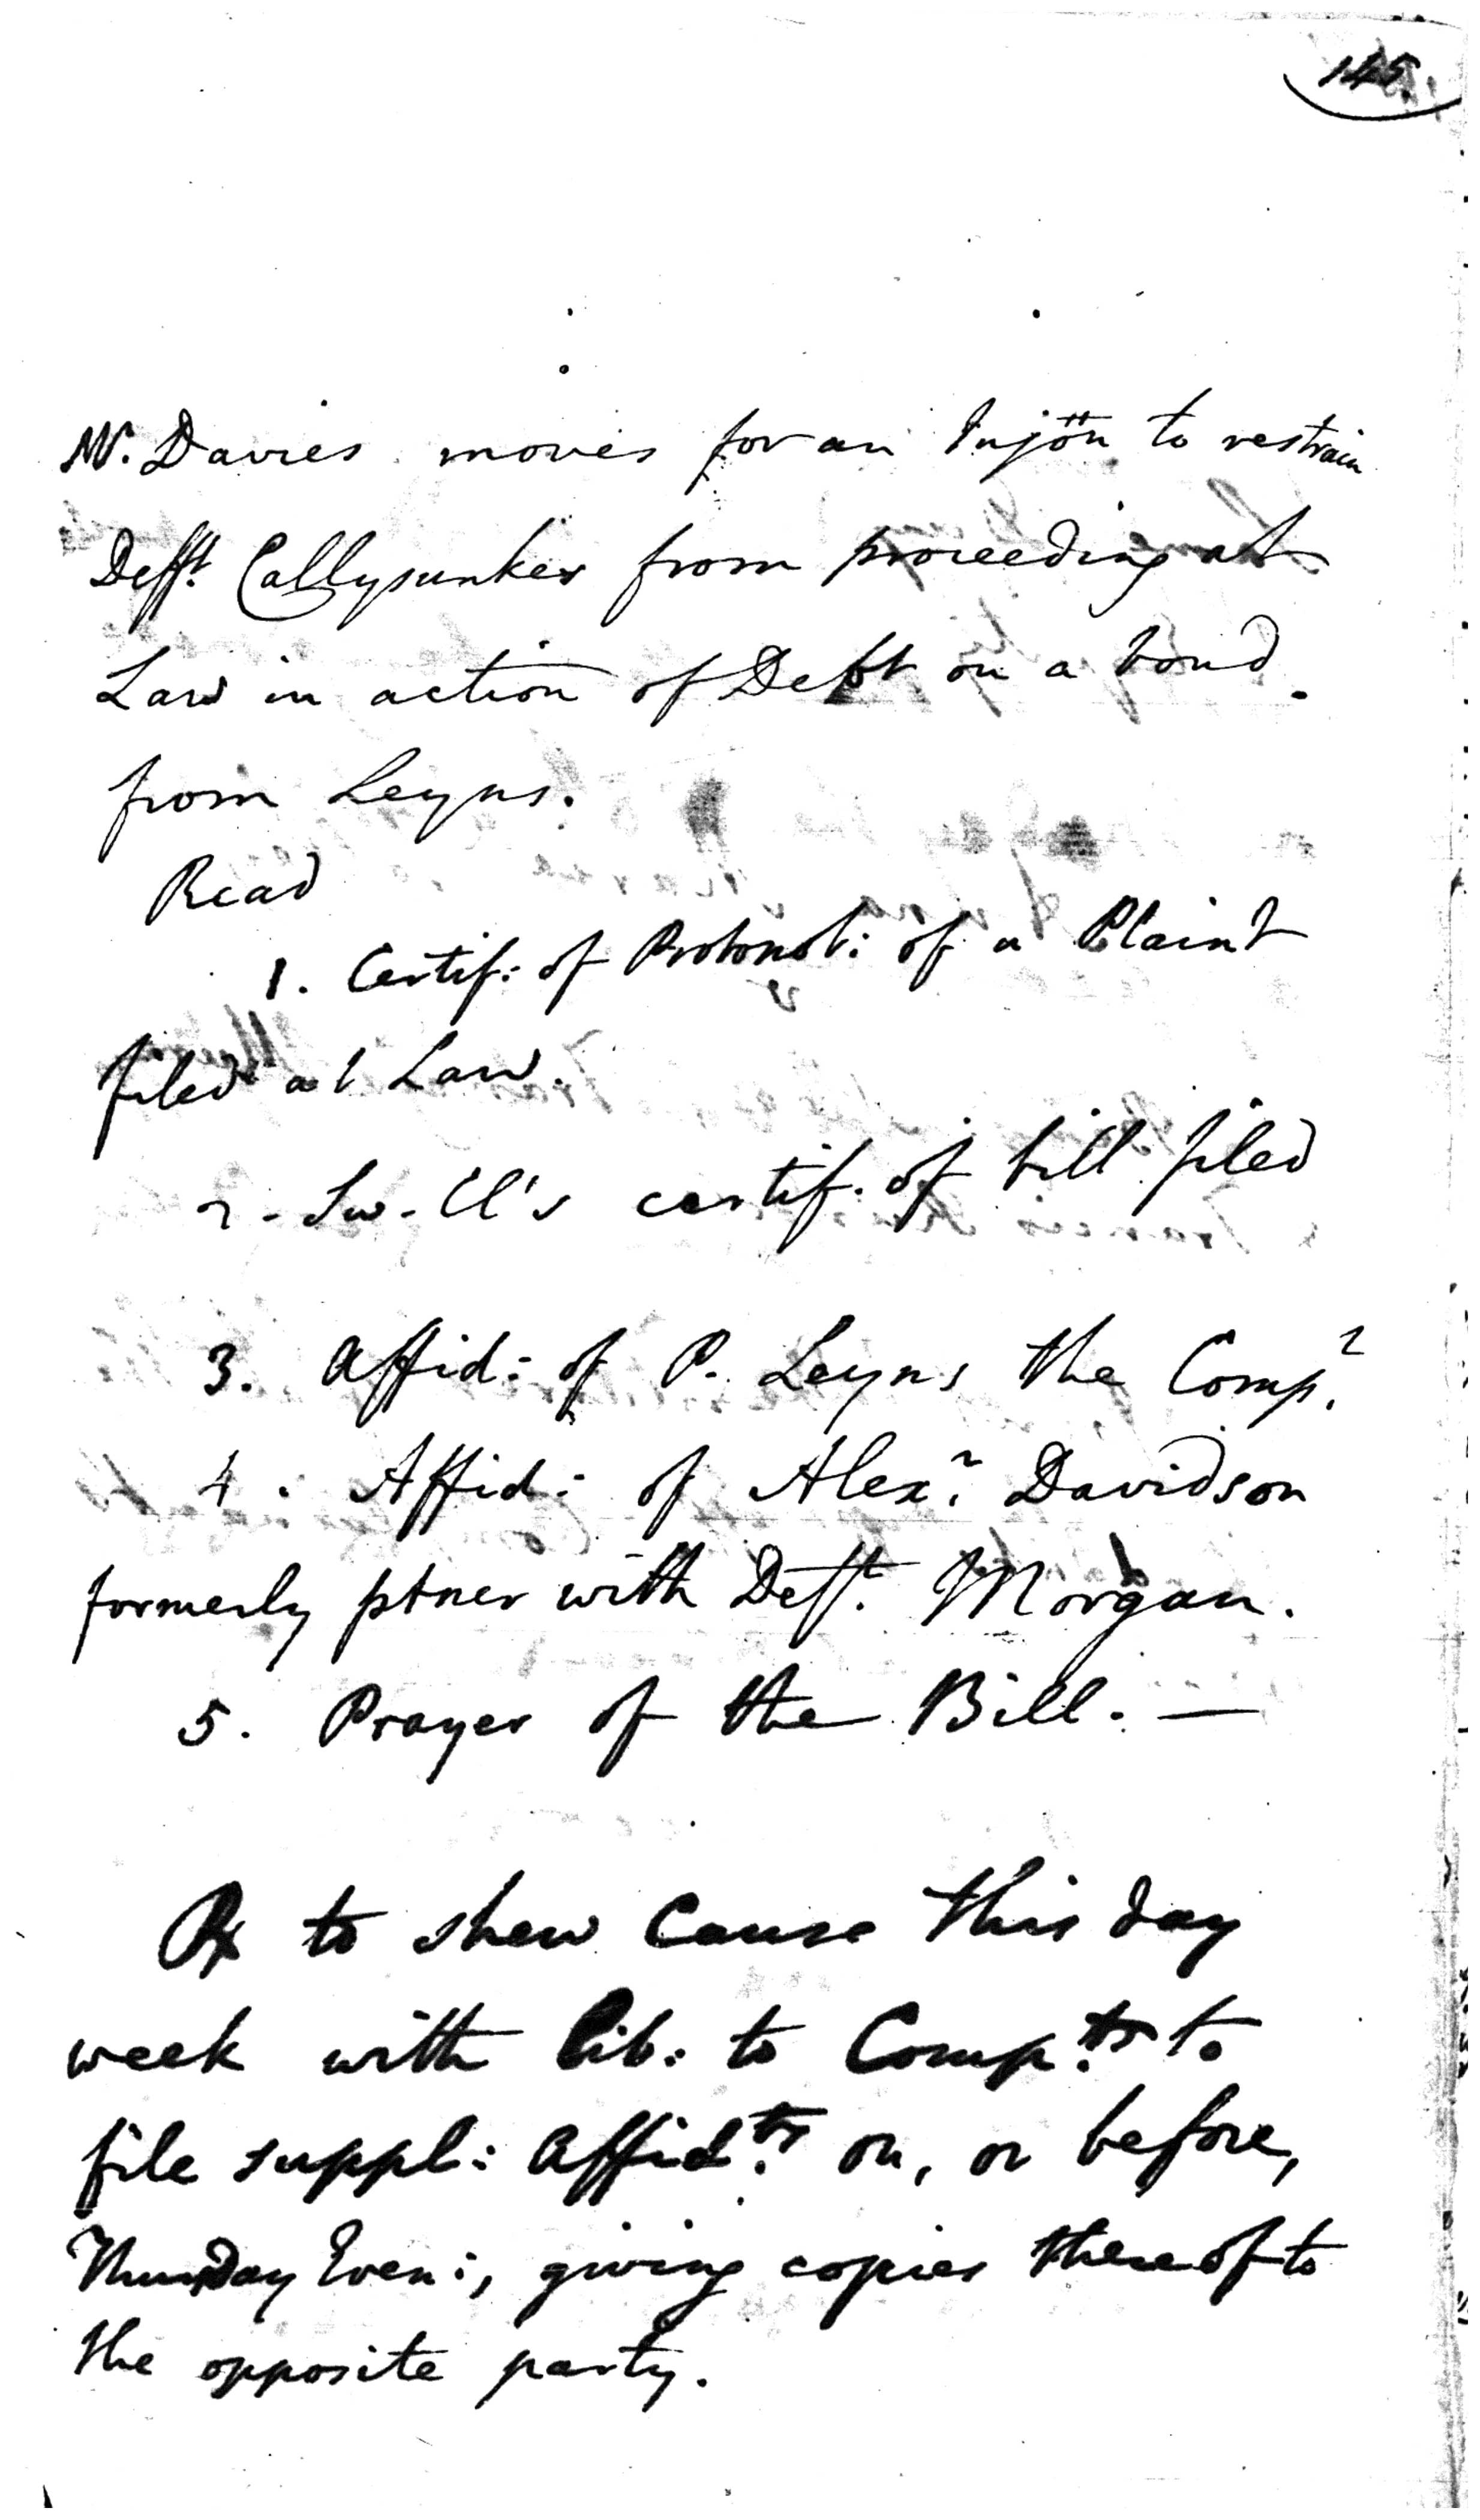 145.
W. Davies moves for an Injön to restrain
Defft. Callysunker from proceeding at
Law in action of Debt on a bond.
from Leyns.
Read
1. Certif: of Protonot: of a Plaint
filed at Law.
2. Sw. Cl's certif. of bill filed
3. Affid: of P. Leyns the Compt.
4. Affid: of Alexr. Davidson
formerly ptner with Deft. Morgan.
5. Prayer of the Bill. —
to shew Cause this day
week with lib: to Compts. to
file suppl: Affidts. on, or before,
Thursday Even:, giving copies thereof to
the opposite party.